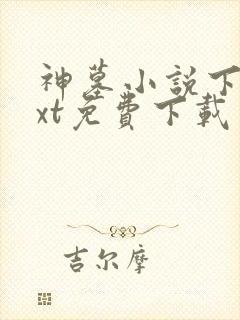 神墓小説下
xt免費下載
吉尔摩